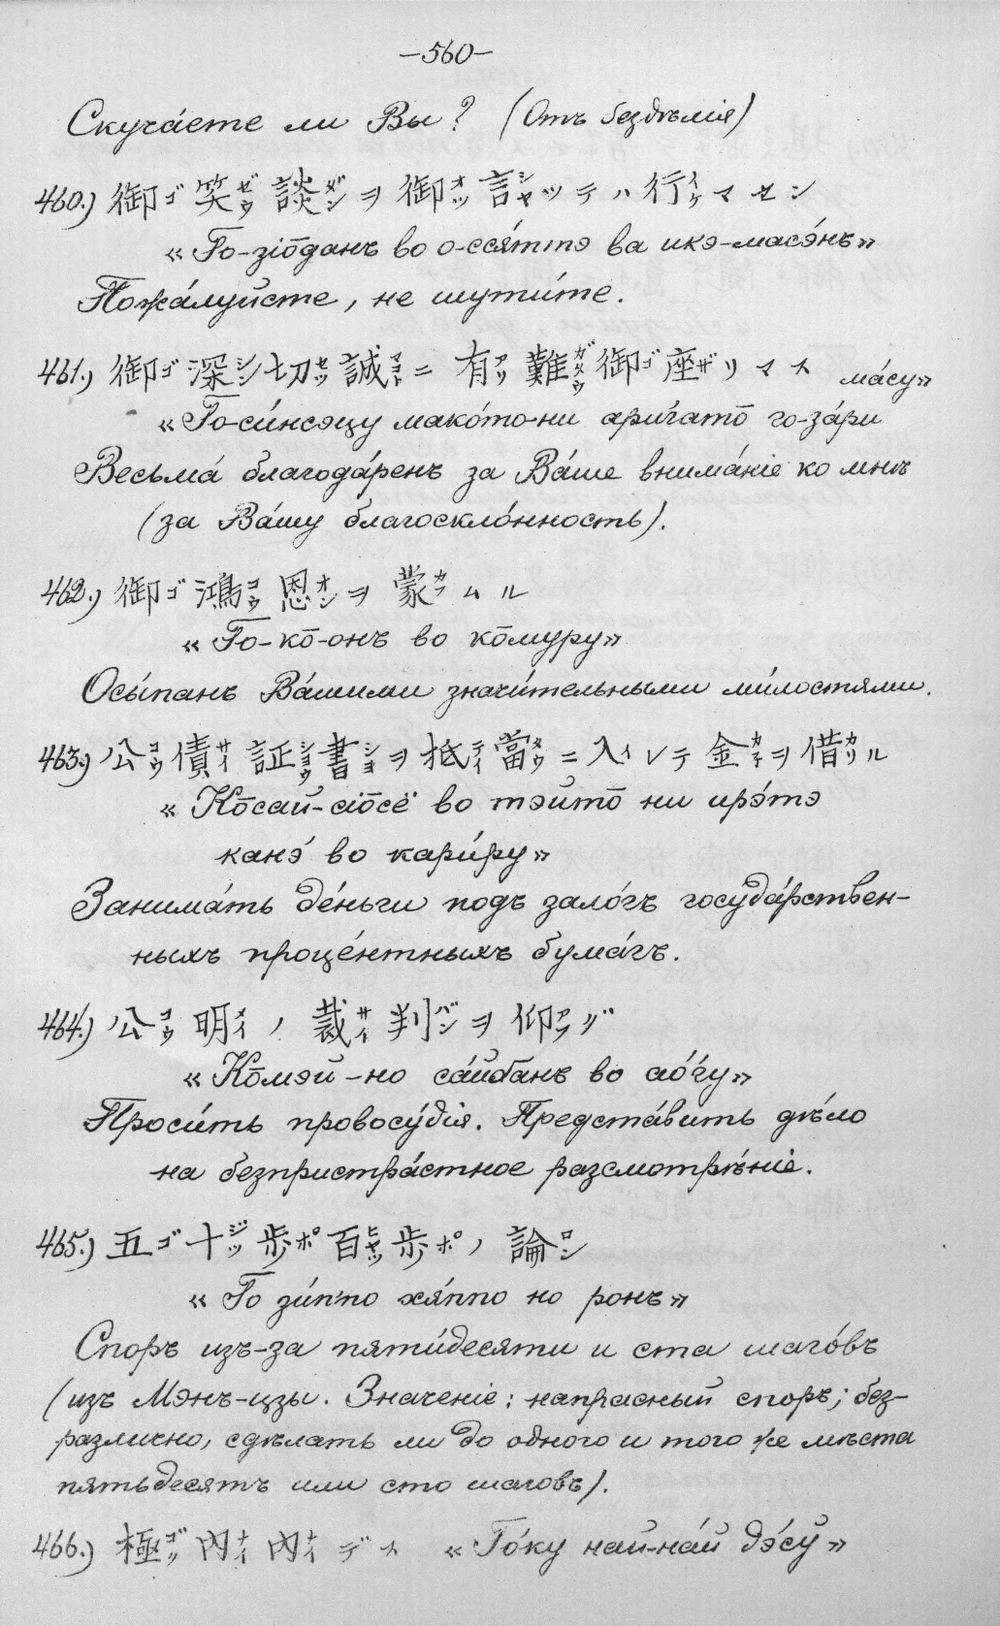 —560—
Скуча́ете ли Вы? (Отъ бездѣлія)
460.) 御ゴ笑ゼウ談ダンヲ御オッ言シャッテハ行イケマセン
«Го-зіо̄данъ во о-сся́ттэ ва икэ-масэ́нъ»
Пожа́луйсте, не шути́те.
461.) 御ゴ深シン切セツ誠マコトニ 有アリ難ガタウ御ゴ座ザリマス ма́су»
«Го-си́нсэцу мако́то-ни ари́гато̄ го-за́ри
Весьма́ благода́ренъ за Ва́ше внима́ніе ко мнѣ
(за Ва́шу благоскло́нность).
462.) 御ゴ鴻コウ恩オンヲ蒙カフムル
«Го-ко̄-онъ во ко̄муру»
Осы́панъ Ва́шими значи́тельными ми́лостями.
463.) 公コウ債サイ証ショウ書ショヲ抵テイ當タウニ入イレテ金カネヲ借カリル
«Ко̄сай-сіо̄сё во тэйто̄ ни ирэ́тэ
канэ́ во кари́ру»
Занима́ть де́ньги подъ зало́гъ госуда́рствен-
ныхъ проце́нтныхъ бума́гъ.
464.) 公コウ明メイノ裁サイ判バンヲ仰アフグ
«Ко̄мэй-но са́йбанъ во ао́гу»
Проси́ть провосу́дія. Предста́вить дѣло
на безпристра́стное разсмотрѣ́ніе.
465.) 五ゴ十ジッ歩ポ百ヒャッ歩ポノ論ロン
«Го зи́п-по хя́ппо но ронъ»
Споръ изъ-за пяти́десяти и ста шаго́въ
(изъ Мэнъ-цзы. Значеніе: напрасный споръ; без-
различно, сдѣлать ли до одного и того же мѣста
пятьдесятъ или сто шаговъ).
466.) 極ゴク內ナイ內ナイデス «Го́ку най-на́й дэ́сў»